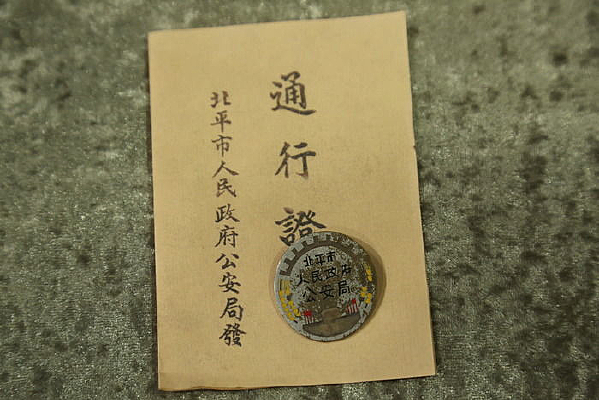 通行證
北平市人民政府公安局發
北平市
人民政府
公安局